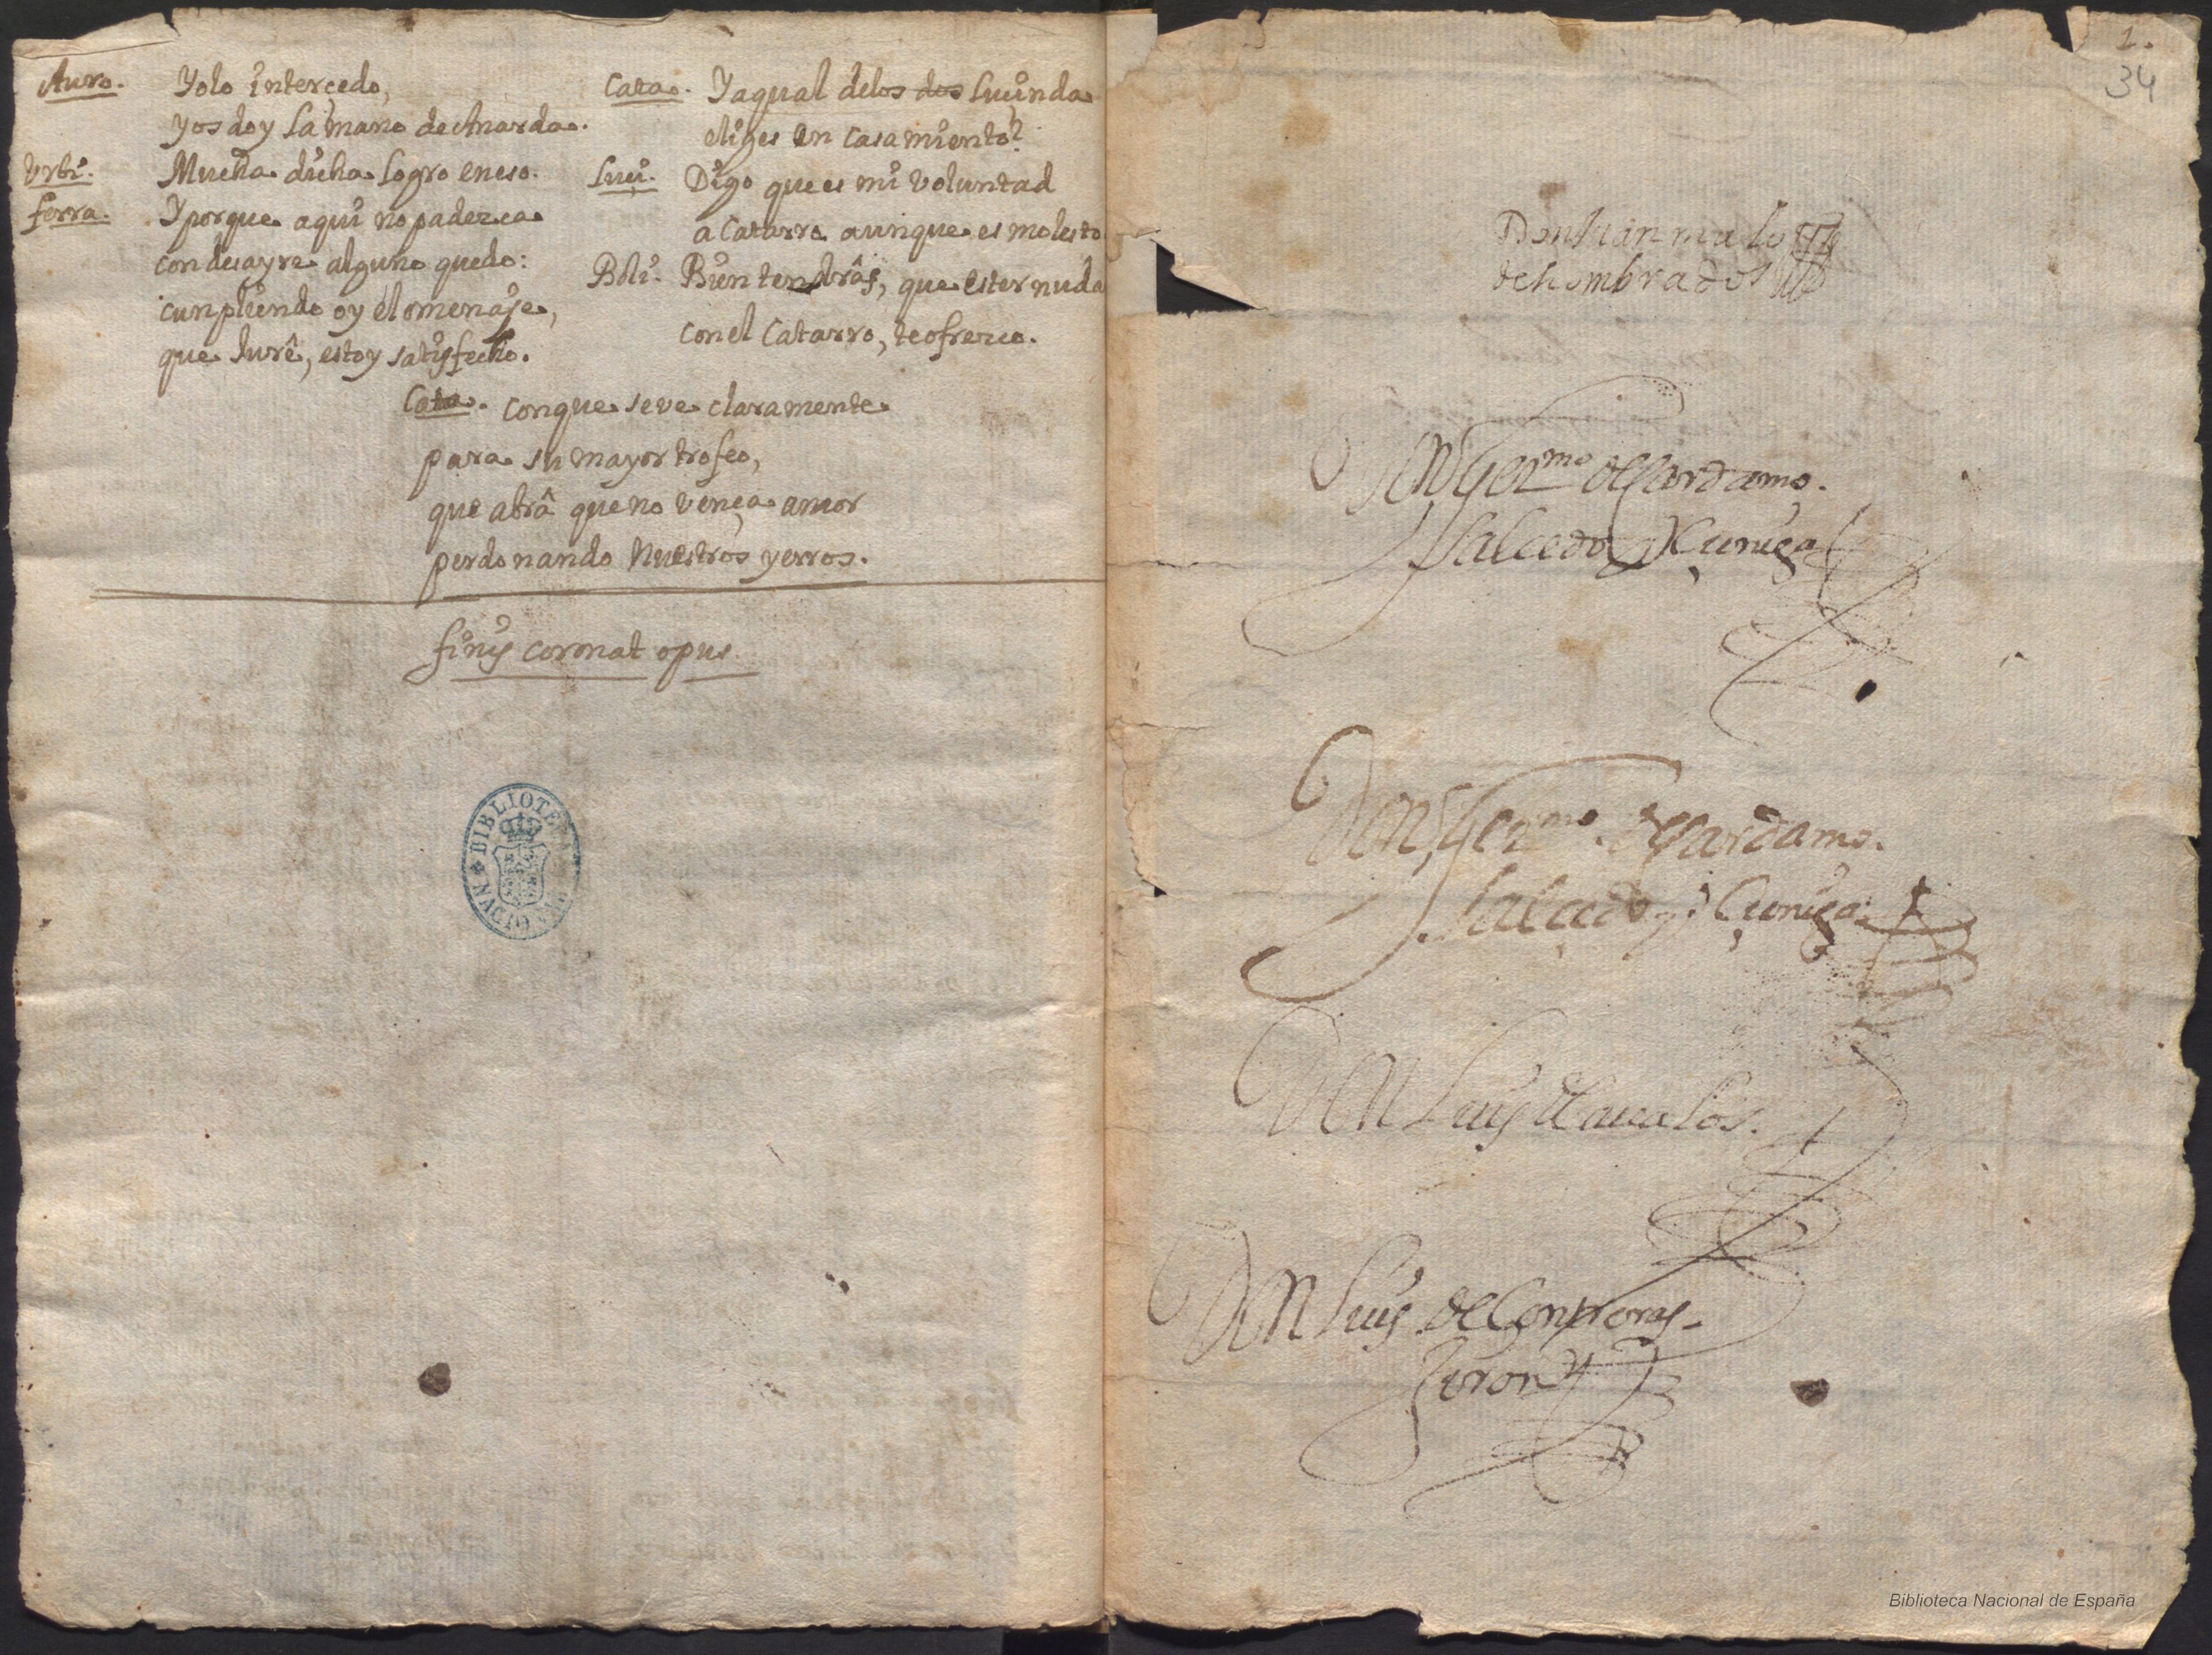 Auro. Yolo interçedo,
Yos doy la mano de Anarda.
Urbi. Mucha dicha logro eneso.
ferra. Yporque aqui no padezca
con desayre alguno quedo:
cunpliendo oy el omenaje,
que Jurê, estoy satisfecho.
Cata. Yaqual delos dos Luçinda
eliges en casamiento?
Luçi. Digo que es mi voluntad
a Catarro aunque es molesto
Boli. Bien tendrâs, que esternuda
con el Catarro, te ofrezco.
Cata. Conque se ve claramente
para su mayor trofeo,
que abrâ que no vença amor
perdonando Nuestros yerros.
finis coronat opus.
BIBLIOTECA NACIONAL
1.
34
Don Juan malo
de hombrados
Don Germo de Gardamo.
Salcedo y Çuniga
Don Germo. de Gardamo.
Salçedo y Çuniga.
Don Luis de aualos.
Don Luis de Contreras
Jiron
Biblioteca Nacional de España